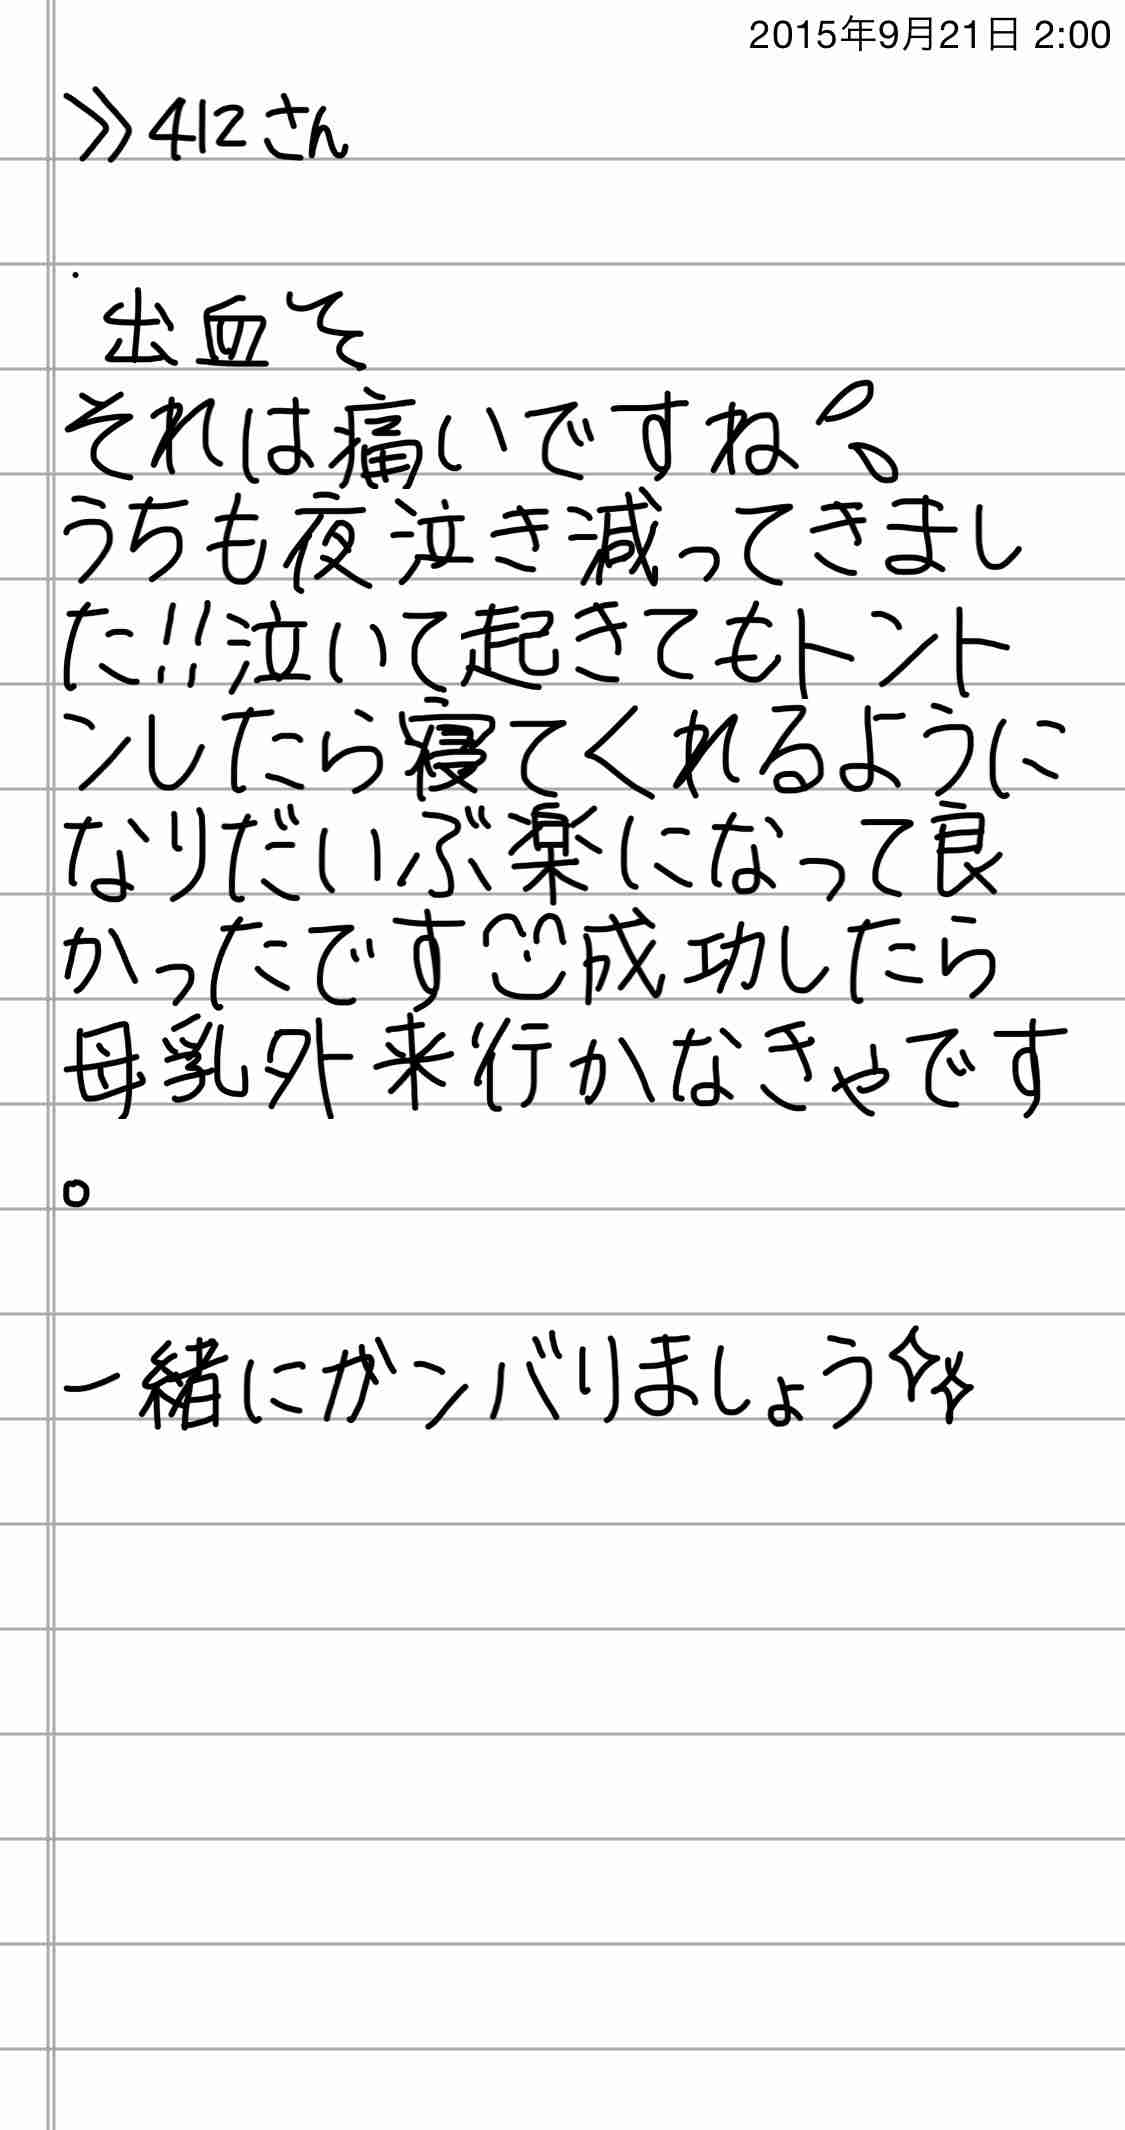 2015年9月21日 2:00
>>412さん
出血そ
それは痛いですね💦
うちも夜泣き減ってきまし
た!!泣いて起きてもトント
ンしたら寝てくれるように
なりだいぶ楽になって良
かったです😊成功したら
母乳外来行かなきゃです
。
一緒にガンバりましょう✨